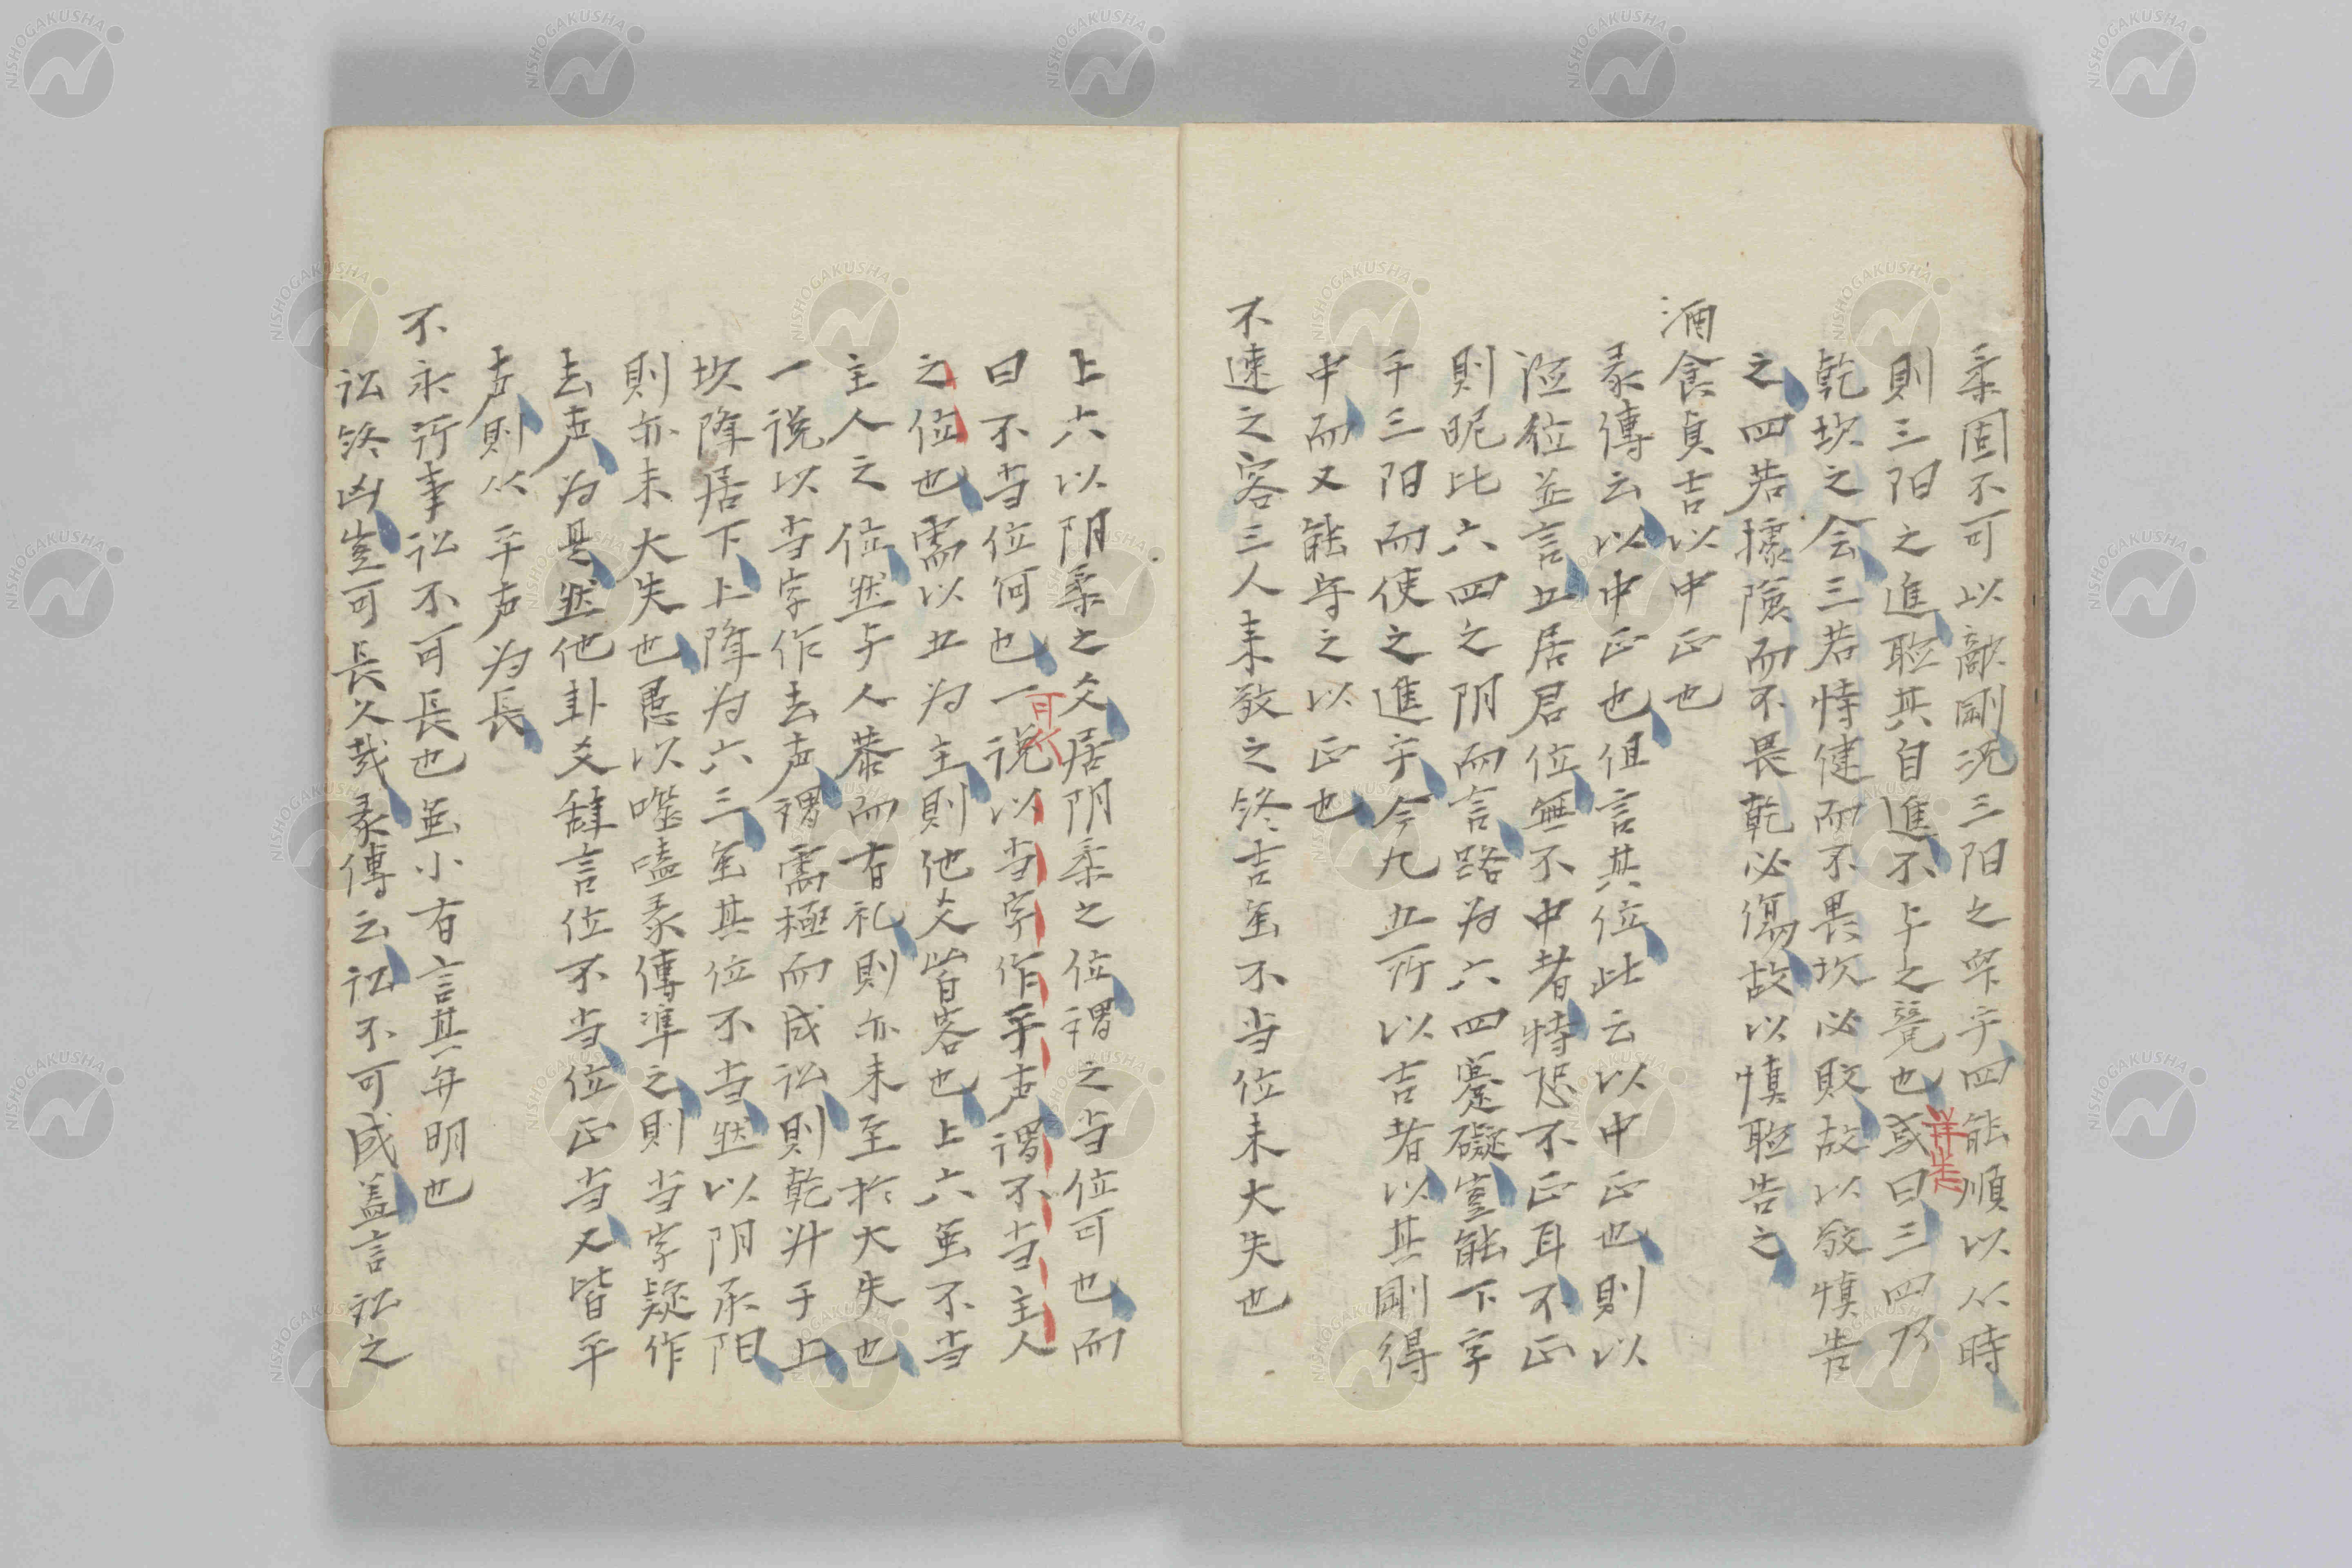 柔固不可以敵剛況三阳之牢乎四能順以从時
則三阳之進聴其自進不与之凳也或曰三四乃
乾坎之会三若恃健而不畏坎必敗故以敬慎告
之四若據險而不畏乾必傷故以慎聴告之
酒食貞吉以中正也
彖傳云以中正也但言其位此云以中正也則以
位並言五居君位無不中者特恐不正耳不正
則昵比六四之阴而言路为六四蹇礙豈能下字
于三阳而使之進乎今九五所以吉者以其剛得
中而又能守之以正也
不速之客三人来敬之終吉虽不当位未大失也
上六以阴柔之爻居阴柔之位谓之当位可也而
曰不当位何也一說以当字作平声谓不当主人
之位也需以五为主則他爻皆客也上六虽不当
主人之位然与人恭而有礼則亦未至於大失也
一說以当字作去声谓需極而成訟則乾升于上
坎降居下上降为六三虽其位不当然以阴承阳
則亦未大失也愚以噬嗑彖傳準之則当字疑作
去声为是然他卦爻辞言位不当位正当又皆平
声則从平声为長
不永所事訟不可長也虽小有言其弁明也
訟終凶豈可長久哉彖傳云訟不可成盖言訟之
可从
祥生
NISHOGAKUSHA